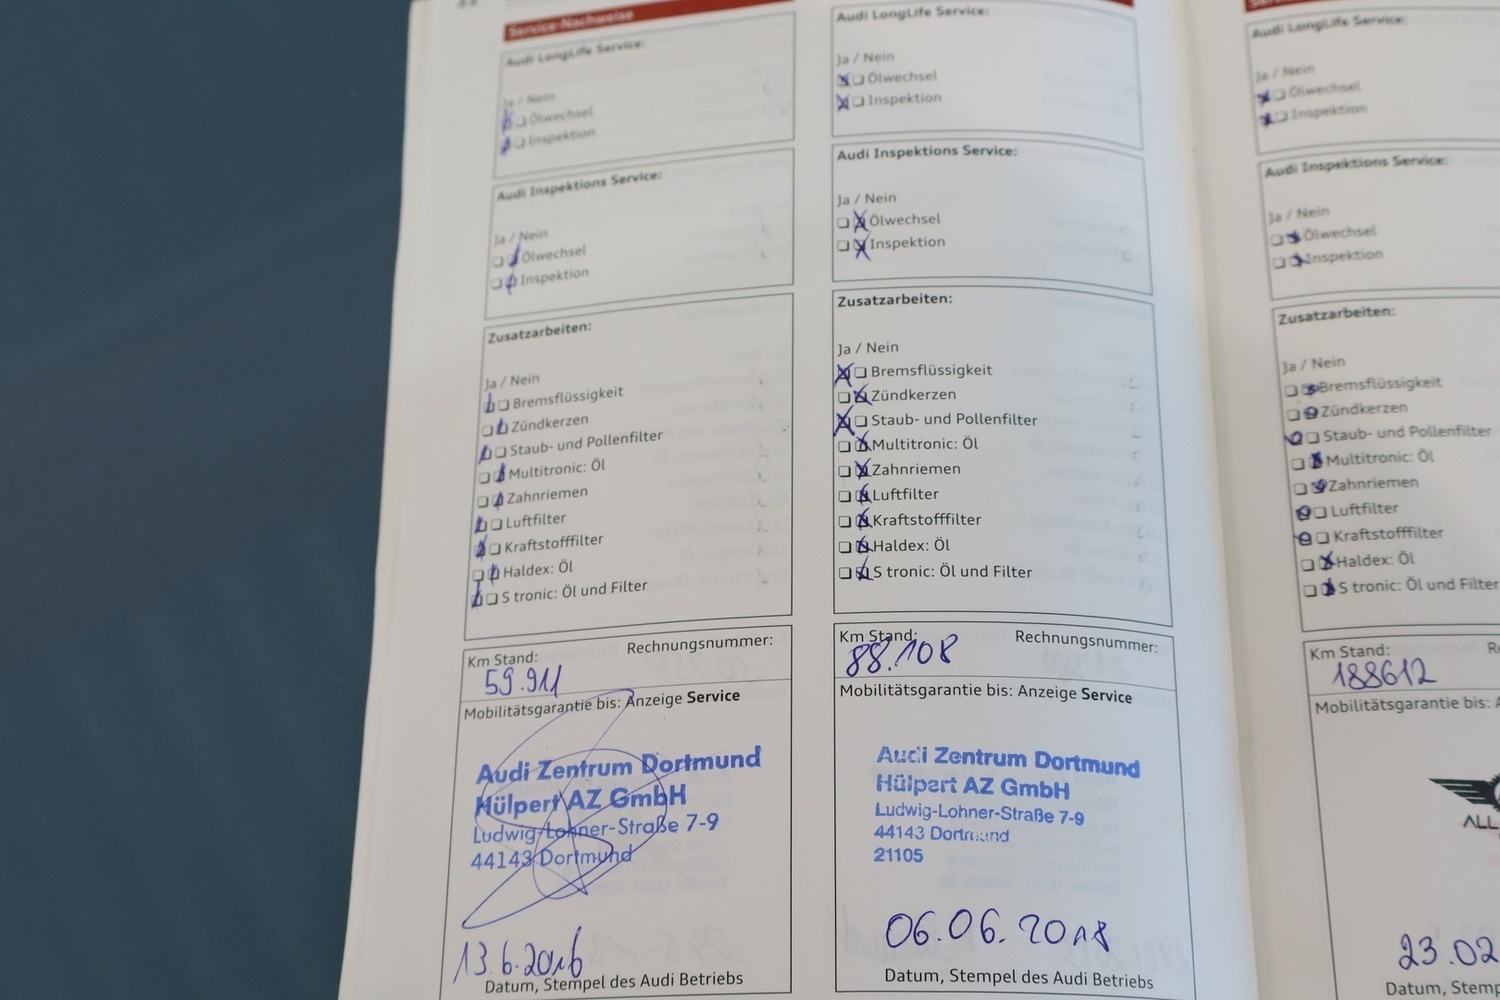 Service-Nachweise
Audi LongLife Service:
Ja / Nein
Ölwechsel
Inspektion
Audi Inspektions Service:
Ja / Nein
Ölwechsel
Inspektion
Zusatzarbeiten:
Ja / Nein
Bremsflüssigkeit
Zündkerzen
Staub- und Pollenfilter
Multitronic: Öl
Zahnriemen
Luftfilter
Kraftstofffilter
Haldex: Öl
S tronic: Öl und Filter
Km Stand: Rechnungsnummer:
59.911
Mobilitätsgarantie bis: Anzeige Service
Audi Zentrum Dortmund
Hülpert AZ GmbH
Ludwig-Lohner-Straße 7-9
44143 Dortmund
13.6.2016
Datum, Stempel des Audi Betriebs
Audi LongLife Service:
Ja / Nein
Ölwechsel
Inspektion
Audi Inspektions Service:
Ja / Nein
Ölwechsel
Inspektion
Zusatzarbeiten:
Ja / Nein
Bremsflüssigkeit
Zündkerzen
Staub- und Pollenfilter
Multitronic: Öl
Zahnriemen
Luftfilter
Kraftstofffilter
Haldex: Öl
S tronic: Öl und Filter
Km Stand: Rechnungsnummer:
88.108
Mobilitätsgarantie bis: Anzeige Service
Audi Zentrum Dortmund
Hülpert AZ GmbH
Ludwig-Lohner-Straße 7-9
44143 Dortmund
21105
06.06.2018
Datum, Stempel des Audi Betriebs
Audi LongLife Service:
Ja / Nein
Ölwechsel
Inspektion
Audi Inspektions Service:
Ja / Nein
Ölwechsel
Inspektion
Zusatzarbeiten:
Ja / Nein
Bremsflüssigkeit
Zündkerzen
Staub- und Pollenfilter
Multitronic: Öl
Zahnriemen
Luftfilter
Kraftstofffilter
Haldex: Öl
S tronic: Öl und Filter
Km Stand:
188612
Mobilitätsgarantie bis:
ALL
23.02
Datum, Stemp